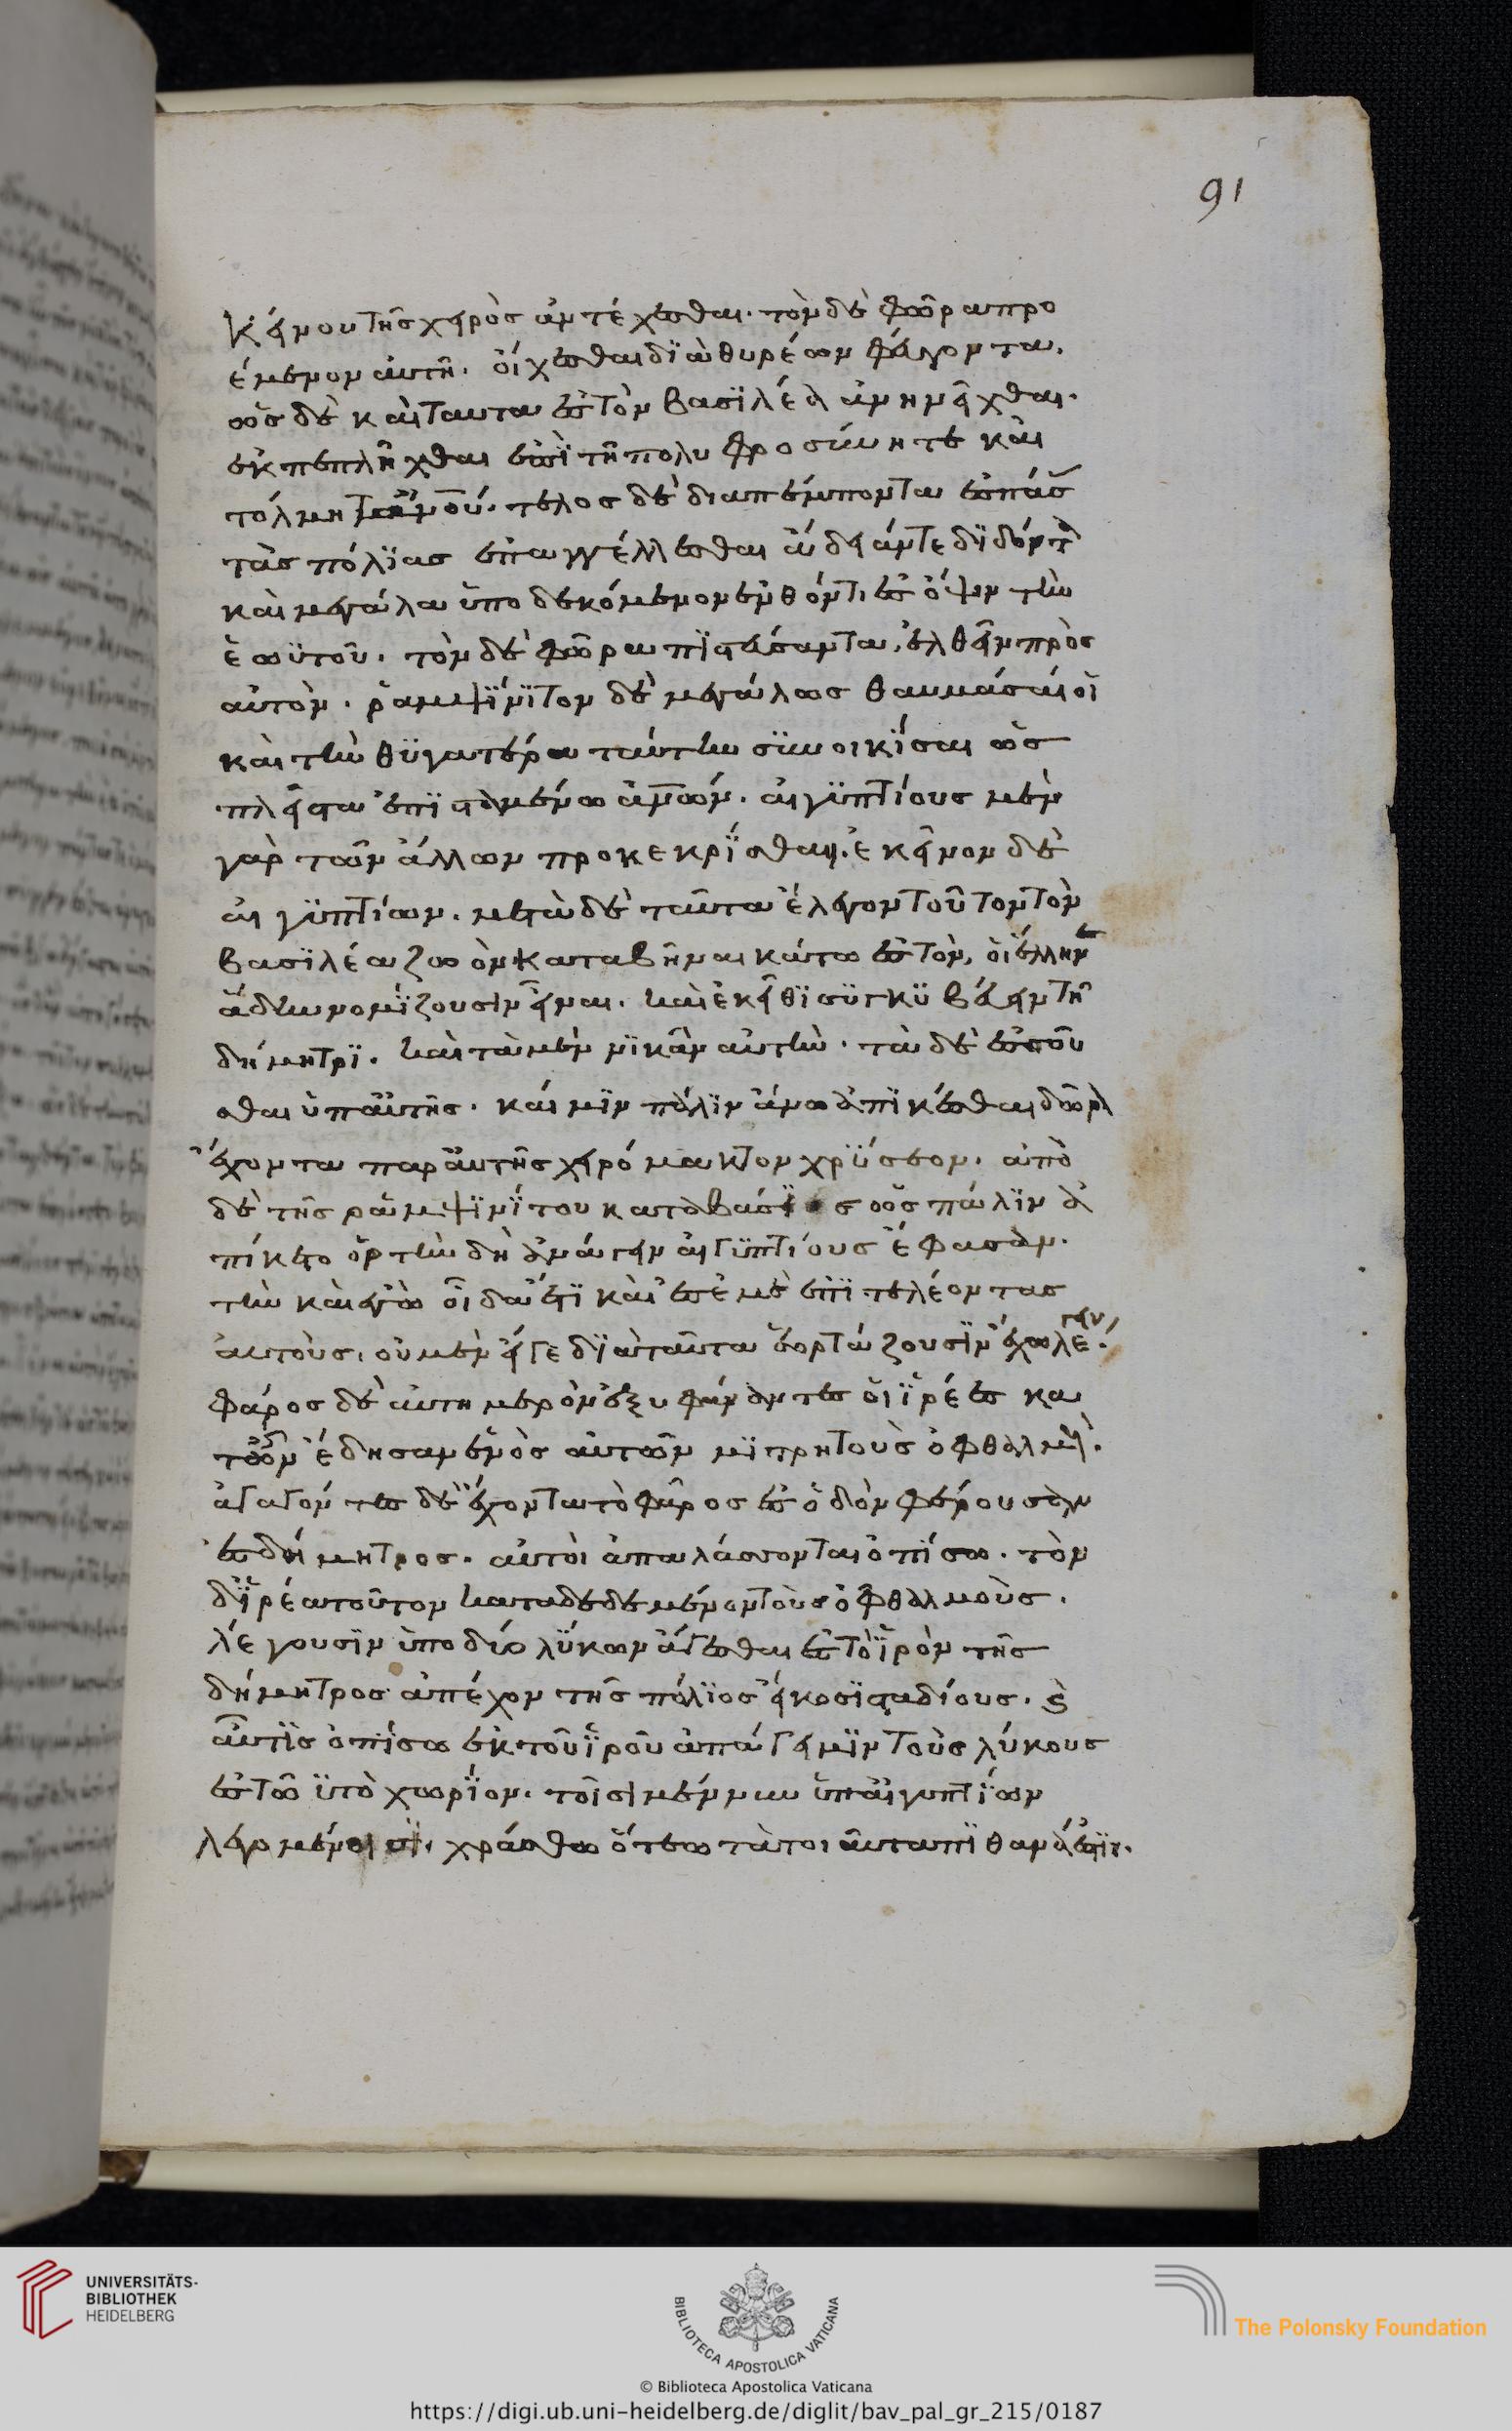 91
κείνου τῆς χειρὸς ἀντέχεσθαι. τὸν δὲ φῶρα προ
έμενον αὐτῆ. οἴχεσθαι διὰ θυρέων φεύγοντα.
ὡς δὲ καὶ ταυτα ἐς τὸν βασϊλέα ἀνηνεῖχθαι.
ἐκπεπλῆχθαι ἐπὶ τῆ πολυφροσύνη τε καὶ
τόλμη τἀνθρώπου. τέλος δὲ διαπέμποντα ἐς πάσας
τὰς πόλϊας ἐπαγγέλλεσθαι ἄδειάν τε δϊδόντα
καὶ μεγάλα ὑποδεκόμενον ἐλθόντι ἐς ὄψιν τὴν
ἑωϋτοῦ. τὸν δὲ φῶρα πϊστεύσαντα, ἐλθεῖν πρὸς
αὐτὸν. ῥαμψϊνϊτον δὲ μεγάλως θαυμάσαι οἱ
καὶ τὴν θϋγατέρα ταύτην σϋνοικίσαι ὡς
πλεῖστα ἐπϊσταμένω ἀνθρώπων. αἰγϋπτίους μὲν
γὰρ τῶν ἄλλων προκεκρΐσθαι. ἐκεῖνον δὲ
αἰγϋπτίων. μετὰ δὲ ταῦτα ἔλεγον τοῦτον τὸν
βασϊλέα ζωὸν καταβῆναι κάτω ἐς τὸν, οἱ ἕλληνες
ἅδην νομϊζουσιν εἶναι. καὶ ἐκεῖθϊ συγκϋβεύειν τῆ
δήμητρϊ. καὶ τὰ μὲν νϊκᾶν αὐτὴν. τὰ δὲ ἑσσοῦ
σθαι ὑπ' αὐτῆς. καί μϊν πάλϊν ἄνω ἀπϊκέσθαι δῶρα
ἔχοντα παρ' αὐτῆς χειρόμακτον χρϋσεον. ἀπὸ
δὲ τῆς ῥαμψϊνϊτου καταβάσϊος ὡς πάλϊν ἀ
πίκετο ὁρτὴν δὴ ἀνάγειν αἰγϋπτίους ἔφασαν.
τὴν καὶ ἐγὼ οἶδα ἔτϊ καὶ ἐς ἐμὲ ἐπϊτελέοντας
αὐτοὺς. οὐ μὲν εἴ γε δϊὰ ταῦτα ὁορτάζουσϊν ἔχω λέ.
γειν,
φάρος δὲ αὐτημερὸν ἐξυφήναντες οἱ ϊρέες κα
τῶν ἔδησαν ἑνὸς αὐτῶν μϊτρη τοὺς ὀφθαλμοὺς.
ἀγαγόντες δὲ ἔχοντα τὸ φᾶρος ἐς ὁδὸν φέρουσαν
ἐς δήμητρος. αὐτοὶ ἀπαλάσσονται ὀπίσω. τὸν
δ' ϊρέα τοῦτον καταδεδεμένον τοὺς ὀφθαλμοὺς.
λέγουσϊν ὑπο δύο λϋκων ἄγεσθαι ἐς τὸ ϊρὸν τῆς
δήμητρος ἀπέχον τῆς πόλϊος εἴκοσϊ σταδίους. καὶ
αὖτϊς ὀπίσω ἐκ τοῦ ϊροῦ ἀπάγειν μϊν τοὺς λύκους
ἐς τὼ ϋτὸ χωρΐον. τοῖσι μέν νυν ὑπ' αἰγυπτϊων
λεγομένοισϊ, χράσθω ὅτεω τὰ τοιαῦτα πϊθανά ἐστϊν.
UNIVERSITÄTS-
BIBLIOTHEK
HEIDELBERG
BIBLIOTECA APOSTOLICA VATICANA
The Polonsky Foundation
© Biblioteca Apostolica Vaticana
https://digi.ub.uni-heidelberg.de/diglit/bav_pal_gr_215/0187